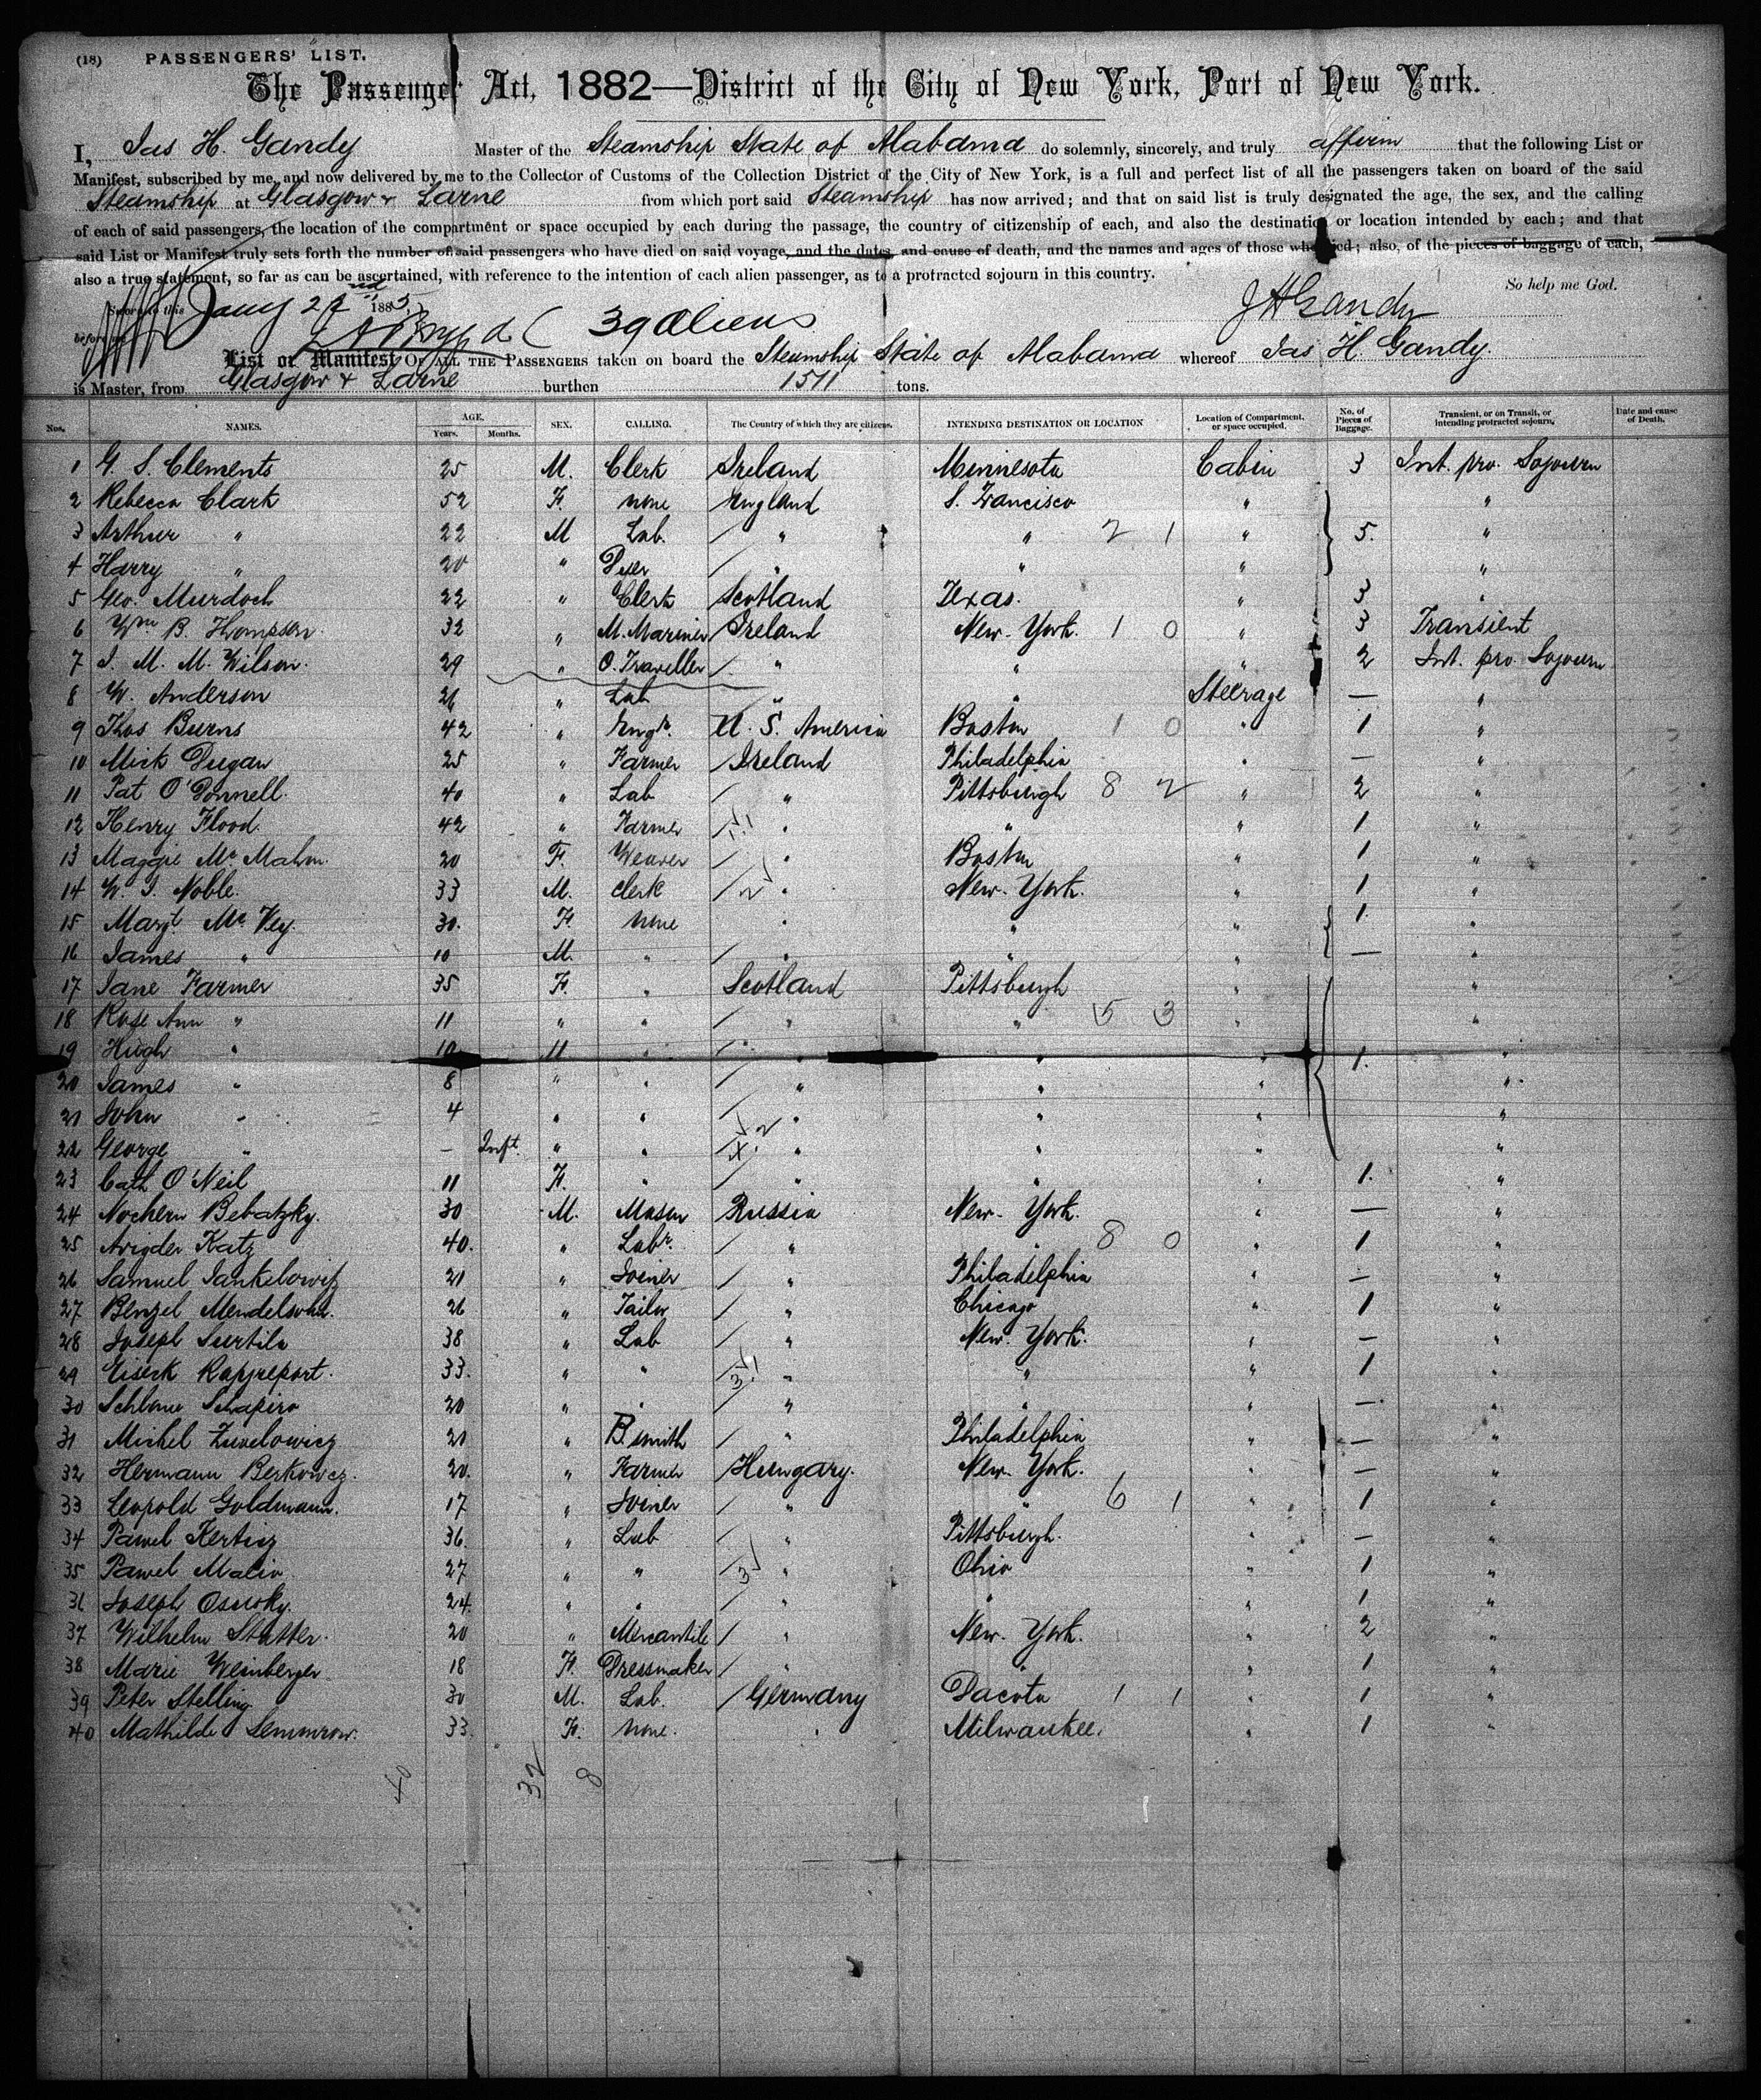 (18) PASSENGERS' LIST.
The Passenger Act, 1882—District of the City of New York, Port of New York.
I, Jas H. Gandy Master of the Steamship State of Alabama do solemnly, sincerely, and truly affirm that the following List or
Manifest, subscribed by me, and now delivered by me to the Collector of Customs of the Collection District of the City of New York, is a full and perfect list of all the passengers taken on board of the said
Steamship at Glasgow & Larne from which port said Steamship has now arrived; and that on said list is truly designated the age, the sex, and the calling
of each of said passengers, the location of the compartment or space occupied by each during the passage, the country of citizenship of each, and also the destination or location intended by each; and that
said List or Manifest truly sets forth the number of said passengers who have died on said voyage, and the dates and cause of death, and the names and ages of those who died; also, of the pieces of baggage of each,
also a true statement, so far as can be ascertained, with reference to the intention of each alien passenger, as to a protracted sojourn in this country.
So help me God.
Sworn to this Jany 27 1885
before me 39 Aliens JHGandy
List or Manifest OF ALL THE PASSENGERS taken on board the Steamship State of Alabama whereof Jas H. Gandy.
is Master, from Glasgow & Larne burthen 1511 tons.
Nos. NAMES. AGE. Years. Months. SEX. CALLING. The Country of which they are citizens. INTENDING DESTINATION OR LOCATION Location of Compartment, or space occupied. No. of Pieces of Baggage. Transient, or on Transit, or intending protracted sojourn. Date and cause of Death.
1 G. S. Clements 25 M. Clerk Ireland Minnesota Cabin 3 Int. pro. Sojourn
2 Rebecca Clark 52 F. none England S. Francisco " "
3 Arthur " 22 M Lab. " " 2 1 " 5. "
4 Harry " 20 " Dyer " " " "
5 Geo. Murdoch 22 " Clerk Scotland Texas. " 3 "
6 Wm. B. Thompson. 32 " M. Mariner Ireland New-York. 1 0 " 3 Transient
7 J. M. M. Wilson. 29 " O. Traveller " " " 2 Int. pro Sojourn
8 W. Anderson 26 " Lab " " Steerage — "
9 Thos Burns 42 " Engr. U. S. America Boston 1 0 " 1 "
10 Mick Dugan 25 " Farmer Ireland Philadelphia " — "
11 Pat O'Donnell. 40 " Lab " Pittsburgh 8 2 " 2 "
12 Henry Flood. 42 " Farmer " " " 1 "
13 Maggie Mc Mahn. 20 F. Weaver " Boston " 1 "
14 W. J. Noble. 33 M. Clerk " New-York. " 1 "
15 Margt Mc Vey. 30. F. none " " " 1. "
16 James " 10 M. " " " " — "
17 Jane Farmer 35 F. " Scotland Pittsburgh " "
18 Rose Ann " 11 " " " " 5 3 " "
19 Hugh " 10 M " " " " 1. "
20 James " 8 " " " " " "
21 John " 4 " " " " " "
22 George " — Inft. " " " " " "
23 Cath O'Neil 11 F. " " " " 1. "
24 Nochem Bebatzky. 30 M. Mason Russia New-York. " — "
25 Avigder Katz 40. " Labr. " " 8 0 " 1 "
26 Samuel Jankelowitz 21 " Joiner " Philadelphia " — "
27 Benzel Mendelsohn. 26 " Tailor " Chicago " 1 "
28 Joseph Surtila 38 " Lab " New-York. " — "
29 Eiserk Rappeport. 33. " " " " " 1 "
30 Schlome Schapiro 20 " " " " " — "
31 Michel Zuvelowicz 21 " B. smith " Philadelphia " — "
32 Hermann Berkowcz. 20. " Farmer Hungary. New-York. " — "
33 Leopold Goldmann. 17 " Joiner " " 6 1 " 1 "
34 Pawel Kertisz 36. " Lab " Pittsburgh. " — "
35 Pawel Malin 27 " " " Ohio " 1 "
36 Joseph Osusky. 24. " " " " " 1 "
37 Wilhelm Statter. 20 " Mercantile " New-York. " 2 "
38 Marie Weinberger 18 F. Dressmaker " " " 1 "
39 Peter Stelling 30 M. Lab. Germany Dacota 1 1 " 1 "
40 Mathilde Lemmrow. 33. F. none. " Milwaukee. " 1 "
40 32 8